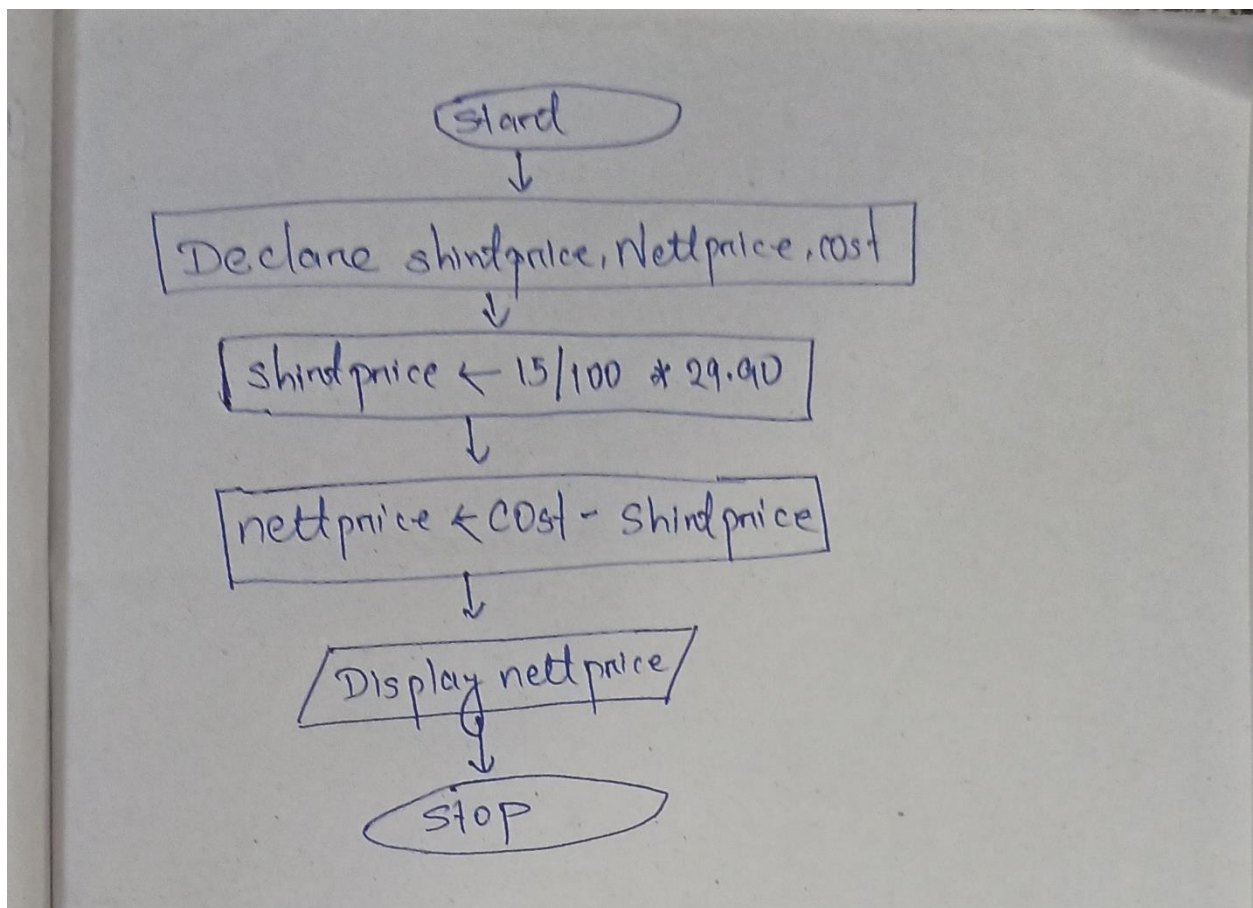 Start
Declare shirtprice, Nettprice, cost
shirtprice ← 15/100 * 29.90
nettprice ← cost - shirtprice
Display nettprice
stop